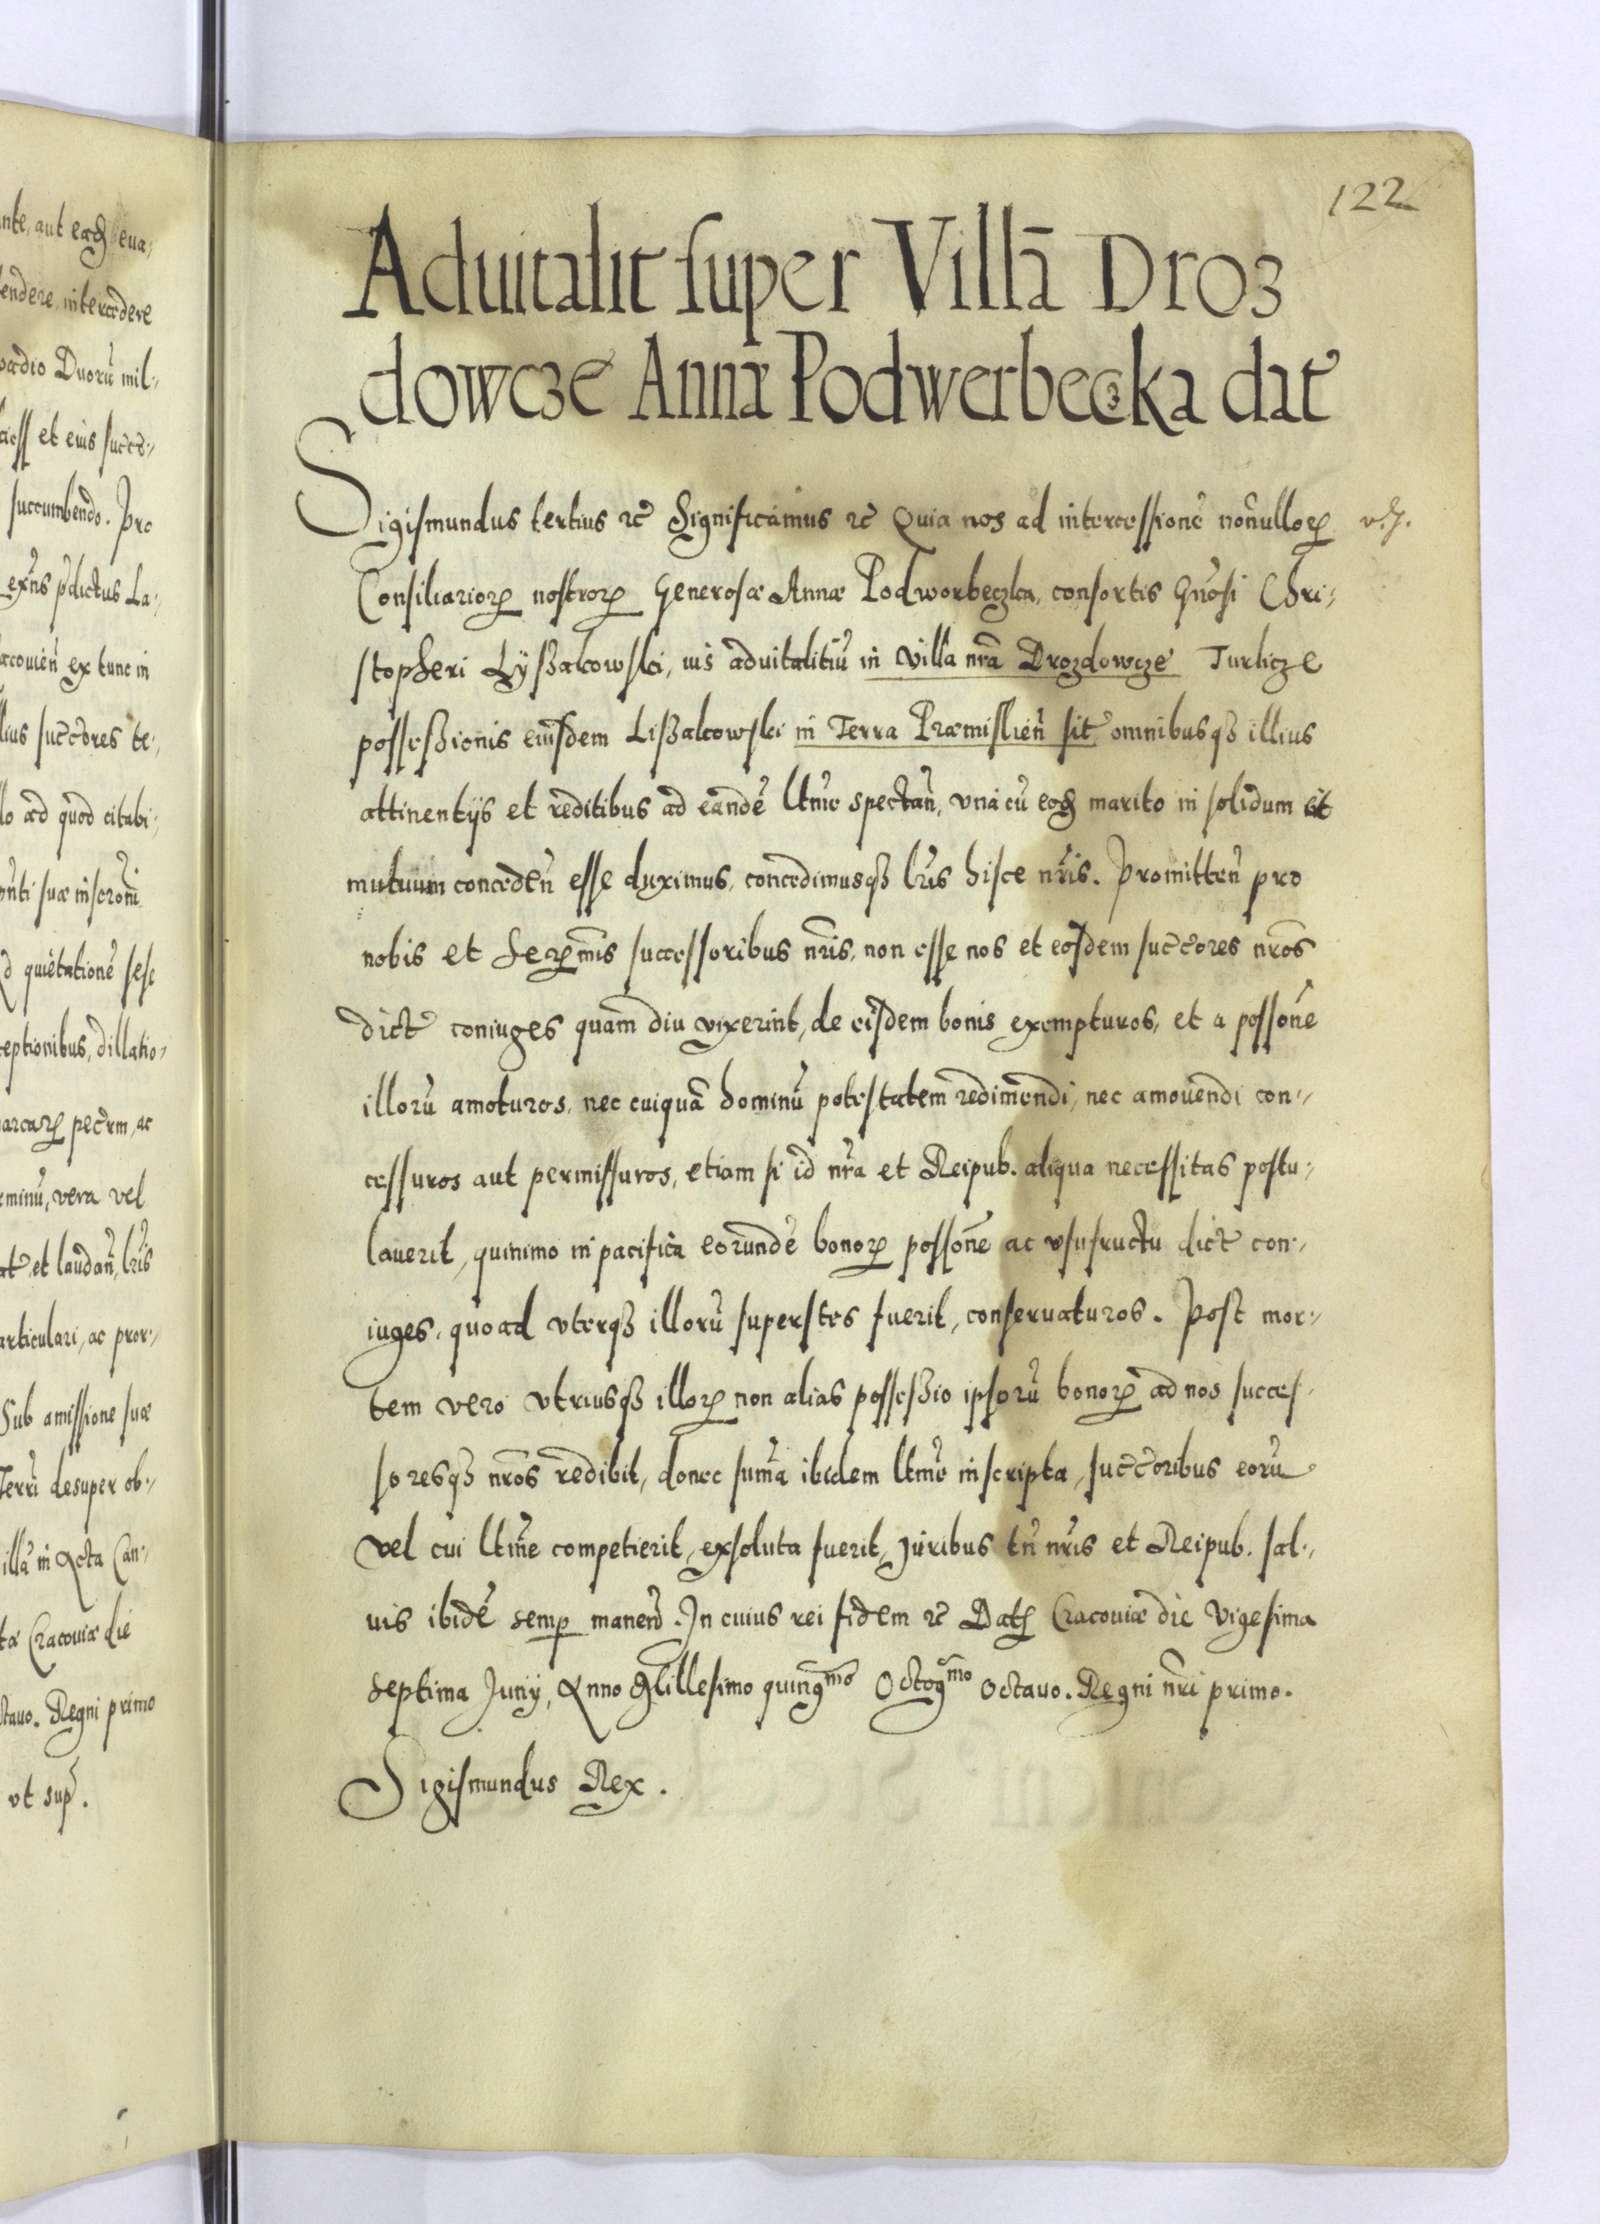 ante, aut eaḋ eua-
tendere, intercedere
vadio Duorū mil-
ciess et eius succe-
succumbendo. Pro
exn̄s p̄dictus La-
acouien̄ ex tunc in
llius succ̄ores te-
lo ad quod citabi-
on̄ti suæ inscron̄i
quietatione sese
ceptionibus, dillatio-
arcarꝝ pec̄rm, ac
erminū, vera vel
at̄ et laudan̄, lr̄is
articulari, ac pror-
Sub amissione suæ
Terr̄i desuper ob-
illā in Acta Can-
Cracouiæ die
ctauo. Regni primo
vt sup̄.
122
Aduitalit super Villā Droz
dowcze Annæ Podwerbeczka dat̄
Sigismundus tertius ꝛc̄ Significamus ꝛc̄ Quia nos ad intercessionē non̄ullorꝝ
Consiliariorꝝ nostrorꝝ Generosæ Annæ Podworbeczka, consortis Gn̄osi Chri-
stopheri Lÿssakowski, ius aduitalitiū in villa nr̄a Drozdowcze Turlicze
possessionis eiusdem Lissakowski in Terra Præmislien̄ sit̄ omnibusqꝫ illius
attinentijs et reditibus ad eandē ltm̄e spectan̄, vna cū eoḋ marito in solidum et
mutuum conceden̄ esse duximus, concedimusqꝫ lr̄is hisce nr̄is. Promitten̄ pro
nobis et Serꝝm̄is successoribus nr̄is, non esse nos et eosdem succ̄ores nr̄os
dict̄ coniuges quam diu vixerint, de eisdem bonis exempturos, et a posson̄e
illorū amoturos, nec cuiquā hominū potestatem redimendi, nec amouendi con-
cessuros aut permissuros, etiam si id nr̄a et Reipub. aliqua necessitas postu-
lauerit, quinimo in pacifica eorundē bonorꝝ posson̄e ac vsufructu dict̄ con-
iuges, quoad vterqꝫ illorū superstes fuerit, conseruaturos. Post mor-
tem vero vtriusqꝫ illorꝝ non alias possessio ipsorū bonorꝝ ad nos succes-
soresqꝫ nr̄os redibit, donec sum̄a ibidem ltm̄e inscripta, succ̄oribus eorū
vel cui ltm̄e competierit, exsoluta fuerit, Juribus tn̄ nr̄is et Reipub. sal-
uis ibidē semp̱ manen̄. In cuius rei fidem ꝛc̄ Datꝫ Cracouiæ die vigesima
septima Junÿ, Anno Millesimo quing̅mo Octog̅mo octauo. Regni nr̄i primo.
Sigismundus Rex.